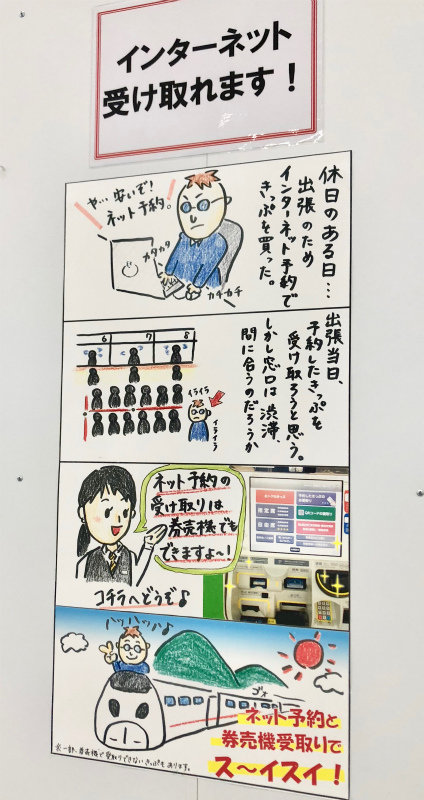 インターネット
受け取れます！
休日のある日…
出張のため
インターネット予約で
きっぷを買った。
や…安いぞ！
ネット予約。
カタカタ
カチカチ
出張当日、
予約したきっぷを
受け取ろうと思う。
しかし窓口は渋滞、
間に合うのだろうか
6 7 8
イライラ
イライラ
ネット予約の
受け取りは
券売機でも
できますよ～！
コチラへどうぞ♪
指定席
自由席
ハッハッハッハ♪
ゴォー
ネット予約と
券売機受取りで
ス～イスイ！
※一部、券売機で受取りできないきっぷもあります。